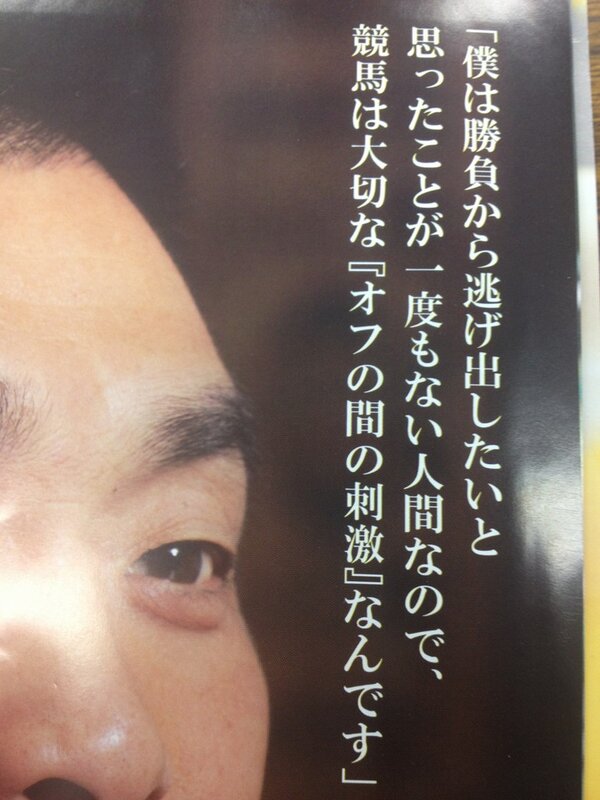 「僕は勝負から逃げ出したいと
思ったことが一度もない人間なので、
競馬は大切な『オフの間の刺激』なんです」